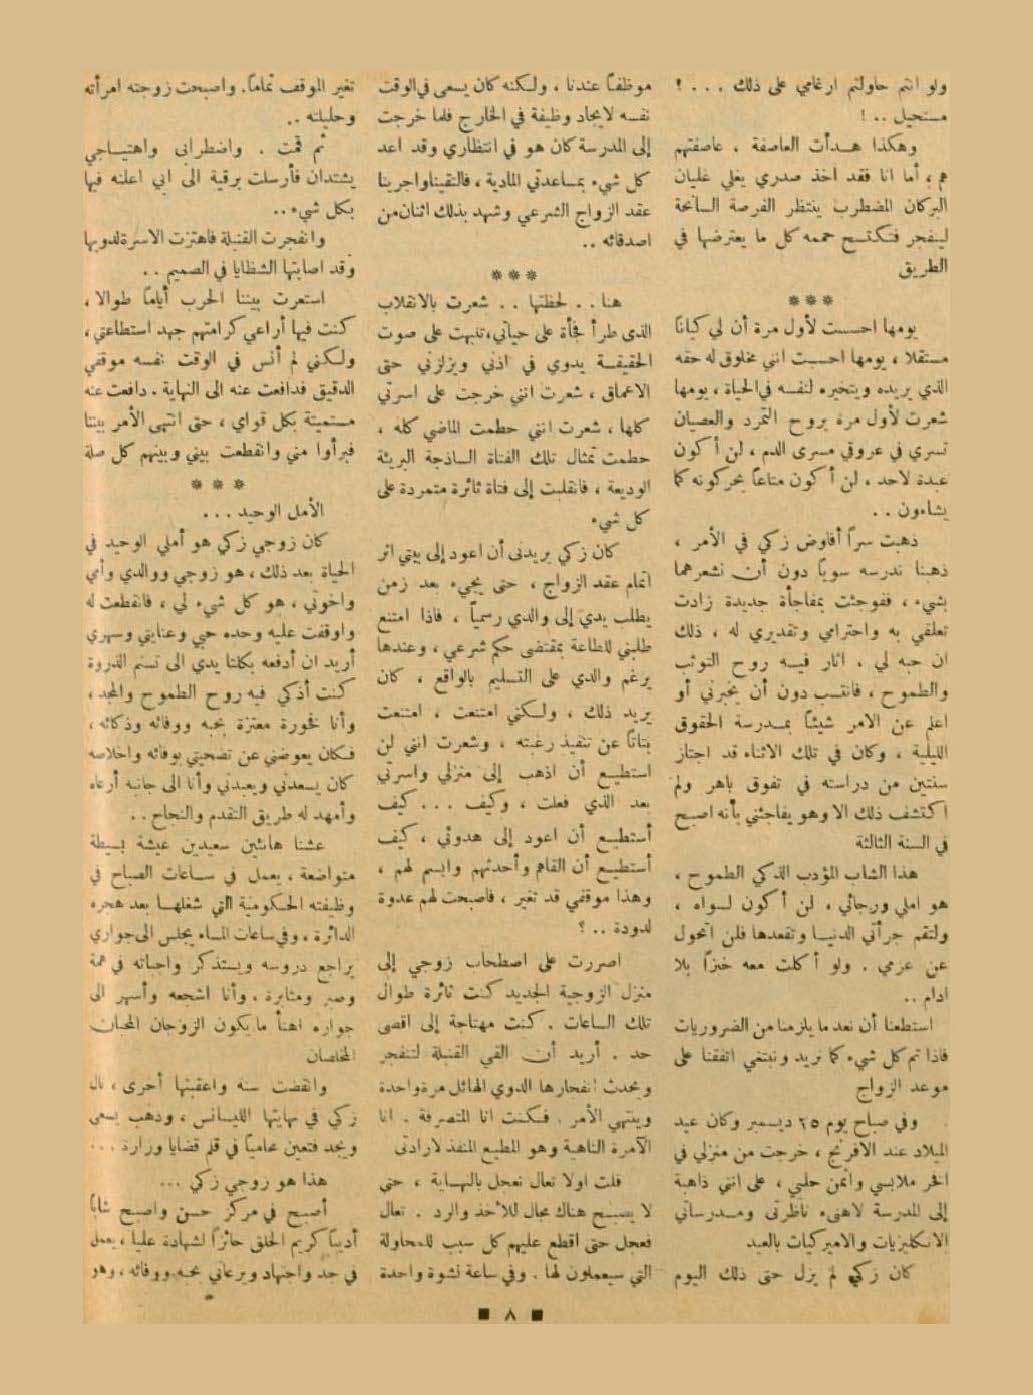 ولو انتم حاولتم ارغامي على ذلك . . . ؟
مستحيل .. !
وهكذا هدأت العاصفة ، عاصفتهم
هم ، أما انا فقد اخذ صدري يغلي غليان
البركان المضطرب ينتظر الفرصة السانحة
لينفجر فتكتسح حممه كل ما يعترضها في
الطريق
***
يومها احسست لأول مرة أن لي كياناً
مستقلا ، يومها احسست انني مخلوق له حقه
الذي يريده ويتخيره لنفسه في الحياة ، يومها
شعرت لأول مرة بروح التمرد والعصيان
تسري في عروقي مسرى الدم ، لن أكون
عبدة لاحد ، لن أكون متاعاً يحركونه كما
يشاءون ..
ذهبت سراً أفاوض زكي في الأمر ،
ذهبنا ندرسه سوياً دون أن نشعرهما
بشيء ، ففوجئت بمفاجأة جديدة زادت
تعلقي به واحترامي وتقديري له ، ذلك
ان حبه لي ، اثار فيه روح التوثب
والطموح ، فانتسب دون أن يخبرني أو
اعلم عن الامر شيئاً بمدرسة الحقوق
الليلية ، وكان في تلك الاثناء قد اجتاز
سنتين من دراسته في تفوق باهر ولم
اكتشف ذلك الا وهو يفاجئني بأنه اصبح
في السنة الثالثة
هذا الشاب المؤدب الذكي الطموح ،
هو املي ورجائي ، لن أكون لسواه ،
ولتقم جرأتي الدنيا وتقعدها فلن اتحول
عن عزمي . ولو أكلت معه خبزاً بلا
ادام ..
استطعنا أن نعد ما يلزمنا من الضروريات
فاذا تم كل شيء كما نريد ونبتغي اتفقنا على
موعد الزواج
وفي صباح يوم ٢٥ ديسمبر وكان عيد
الميلاد عند الافرنج ، خرجت من منزلي في
افخر ملابسي وأثمن حليي ، على انني ذاهبة
إلى المدرسة لاهنىء ناظرتي ومدرساتي
الانكليزيات والاميركيات بالعيد
كان زكي لم يزل حتى ذلك اليوم
موظفاً عندنا ، ولكنه كان يسعى في الوقت
نفسه لايجاد وظيفة في الخارج فلما خرجت
إلى المدرسة كان هو في انتظاري وقد اعد
كل شيء بمساعدتي المادية ، فالتقينا واجرينا
عقد الزواج الشرعي وشهد بذلك اثنان من
اصدقائه ..
***
هنا .. لحظتها .. شعرت بالانقلاب
الذى طرأ فجأة على حياتي ، تنبهت على صوت
الحقيقة يدوي في اذني ويزلزني حتى
الاعماق ، شعرت انني خرجت على اسرتي
كلها ، شعرت انني حطمت الماضي كله ،
حطمت تمثال تلك الفتاة الساذجة البريئة
الوديعة ، فانقلبت إلى فتاة ثائرة متمردة على
كل شيء
كان زكي يريدنى أن اعود إلى بيتي اثر
اتمام عقد الزواج ، حتى يجيء بعد زمن
يطلب يدي إلى والدي رسمياً ، فاذا امتنع
طلبني للطاعة بمقتضى حكم شرعي ، وعندها
يرغم والدي على التسليم بالواقع ، كان
يريد ذلك ، ولكني امتنعت ، امتنعت
بتاتاً عن تنفيذ رغبته ، وشعرت انني لن
استطيع أن اذهب إلى منزلي واسرتي
بعد الذي فعلت ، وكيف ... كيف
أستطيع أن اعود إلى هدوئي ، كيف
أستطيع أن القاهم وأحدثهم وابسم لهم ،
وهذا موقفي قد تغير ، فاصبحت لهم عدوة
لدودة .. ؟
اصررت على اصطحاب زوجي إلى
منزل الزوجية الجديد كنت ثائرة طوال
تلك الساعات . كنت مهتاجة إلى اقصى
حد . أريد أن القي القنبلة لتنفجر
ويحدث انفجارها الدوي الهائل مرة واحدة
وينتهي الأمر . فكنت انا المتصرفة . انا
الآمرة الناهية وهو المطيع المنفذ لارادتى
قلت اولا تعال نعجل بالنهاية ، حتى
لا يصبح هناك مجال للأخذ والرد . تعال
فعجل حتى اقطع عليهم كل سبب للمحاولة
التي سيعملون لها . وفي ساعة نشوة واحدة
تغير الموقف تماماً . واصبحت زوجته امرأته
وحليلته ..
ثم قمت . واضطرابى واهتياجي
يشتدان فأرسلت برقية الى ابي اعلنه فيها
بكل شيء ..
وانفجرت القنبلة فاهتزت الاسرة لدويها
وقد اصابتها الشظايا في الصميم ..
استعرت بيننا الحرب أياماً طوالا ،
كنت فيها أراعي كرامتهم جهد استطاعتي ،
ولكني لم أنس في الوقت نفسه موقفي
الدقيق فدافعت عنه الى النهاية . دافعت عنه
مستميتة بكل قواي ، حتى انتهى الأمر بيننا
فبرأوا مني وانقطعت بيني وبينهم كل صلة
***
الأمل الوحيد ...
كان زوجي زكي هو أملي الوحيد في
الحياة بعد ذلك ، هو زوجي ووالدي وأمي
واخوتي ، هو كل شيء لي ، فانقطعت له
واوقفت عليه وحده حبي وعنايتي وسهري
أريد ان أدفعه بكلتا يدي الى تسنم الذروة
كنت أذكي فيه روح الطموح والمجد ،
وأنا فخورة معتزة بحبه ووفائه وذكائه ،
فكان يعوضني عن تضحيتي بوفائه واخلاصه
كان يسعدني ويعبدني وأنا الى جانبه أرعاه
وأمهد له طريق التقدم والنجاح ..
عشنا هانئين سعيدين عيشة بسيطة
متواضعة ، يعمل في ساعات الصباح في
وظيفته الحكومية التي شغلها بعد هجره
الدائرة ، وفي ساعات المساء يجلس الى جواري
يراجع دروسه ويستذكر واجباته في همة
وصبر ومثابرة . وأنا اشجعه وأسهر الى
جواره اهنأ ما يكون الزوجان المحبان
المخلصان
وانقضت سنة واعقبتها أخرى ، نال
زكي في نهايتها الليسانس ، وذهب يسعى
ويجد فتعين محامياً في قلم قضايا وزارة ...
هذا هو زوجي زكي ...
أصبح في مركز حسن واصبح شاباً
أديباً كريم الخلق حائزاً لشهادة عليا ، يعمل
في جد واجتهاد ويرعاني بحبه ووفائه ، وهو
■ ٨ ■